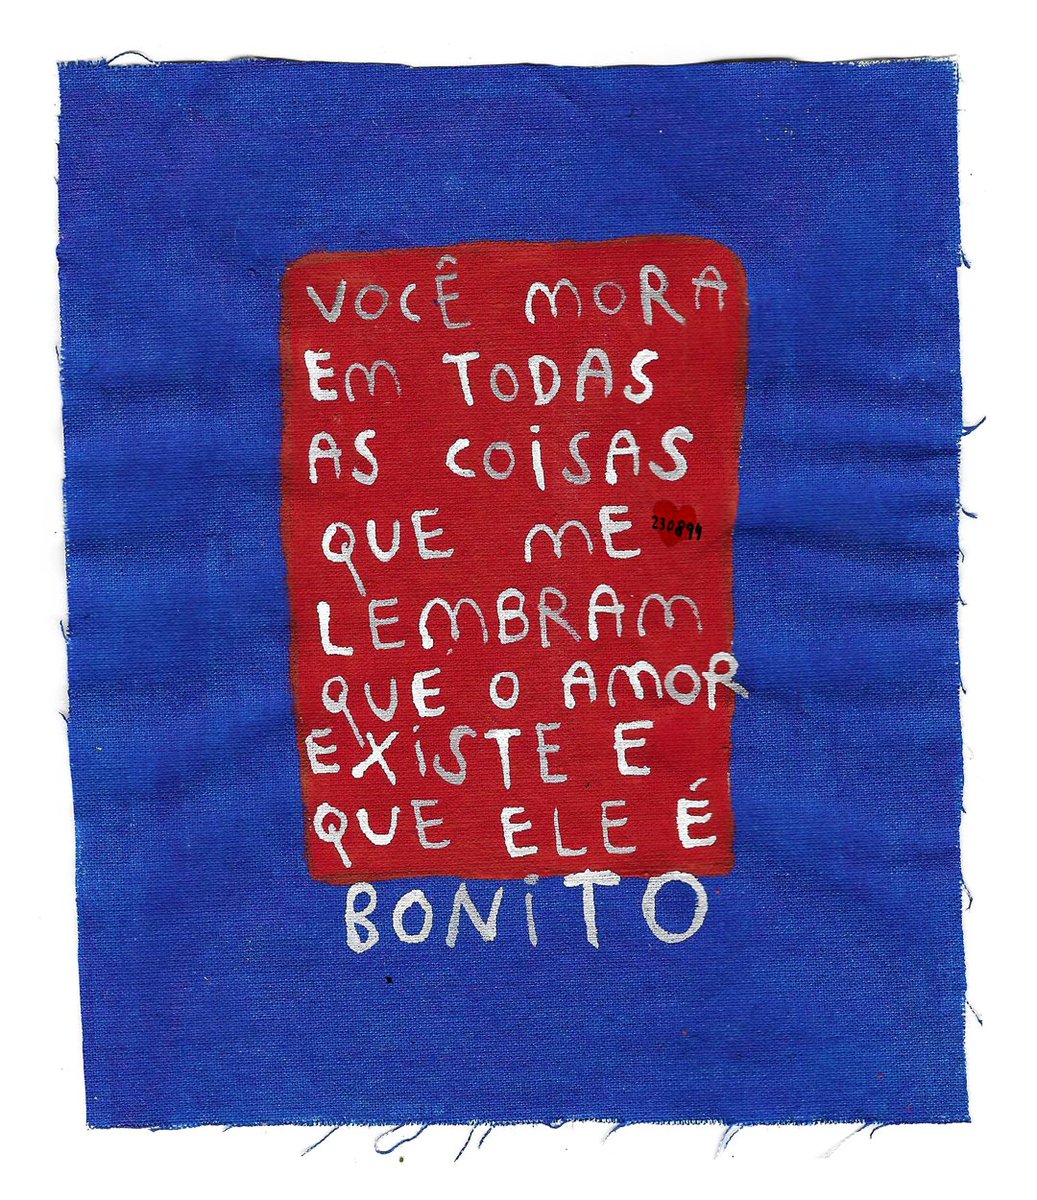 VOCÊ MORA
EM TODAS
AS COISAS
QUE ME
230894
LEMBRAM
QUE O AMOR
EXISTE E
QUE ELE É
BONITO